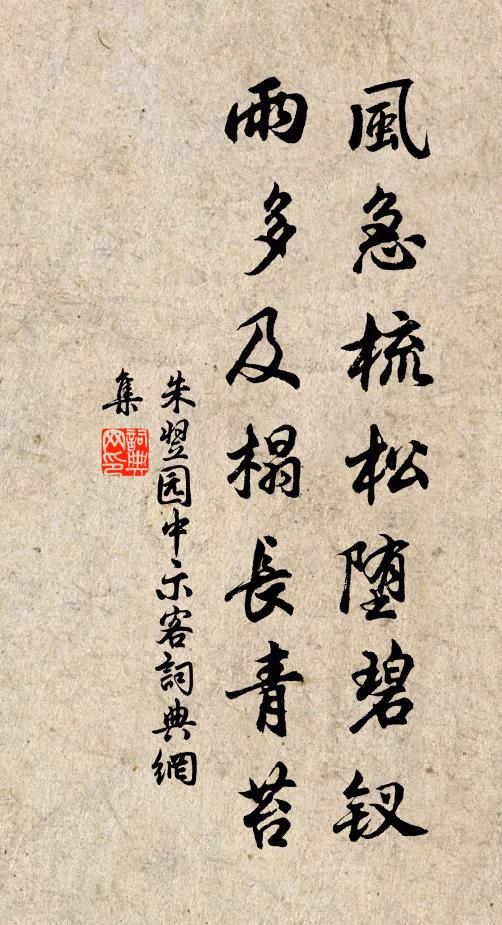 風急梳松堕碧钗
雨多及榻長青苔
朱翌园中示客詞典網
集
詞典
网印